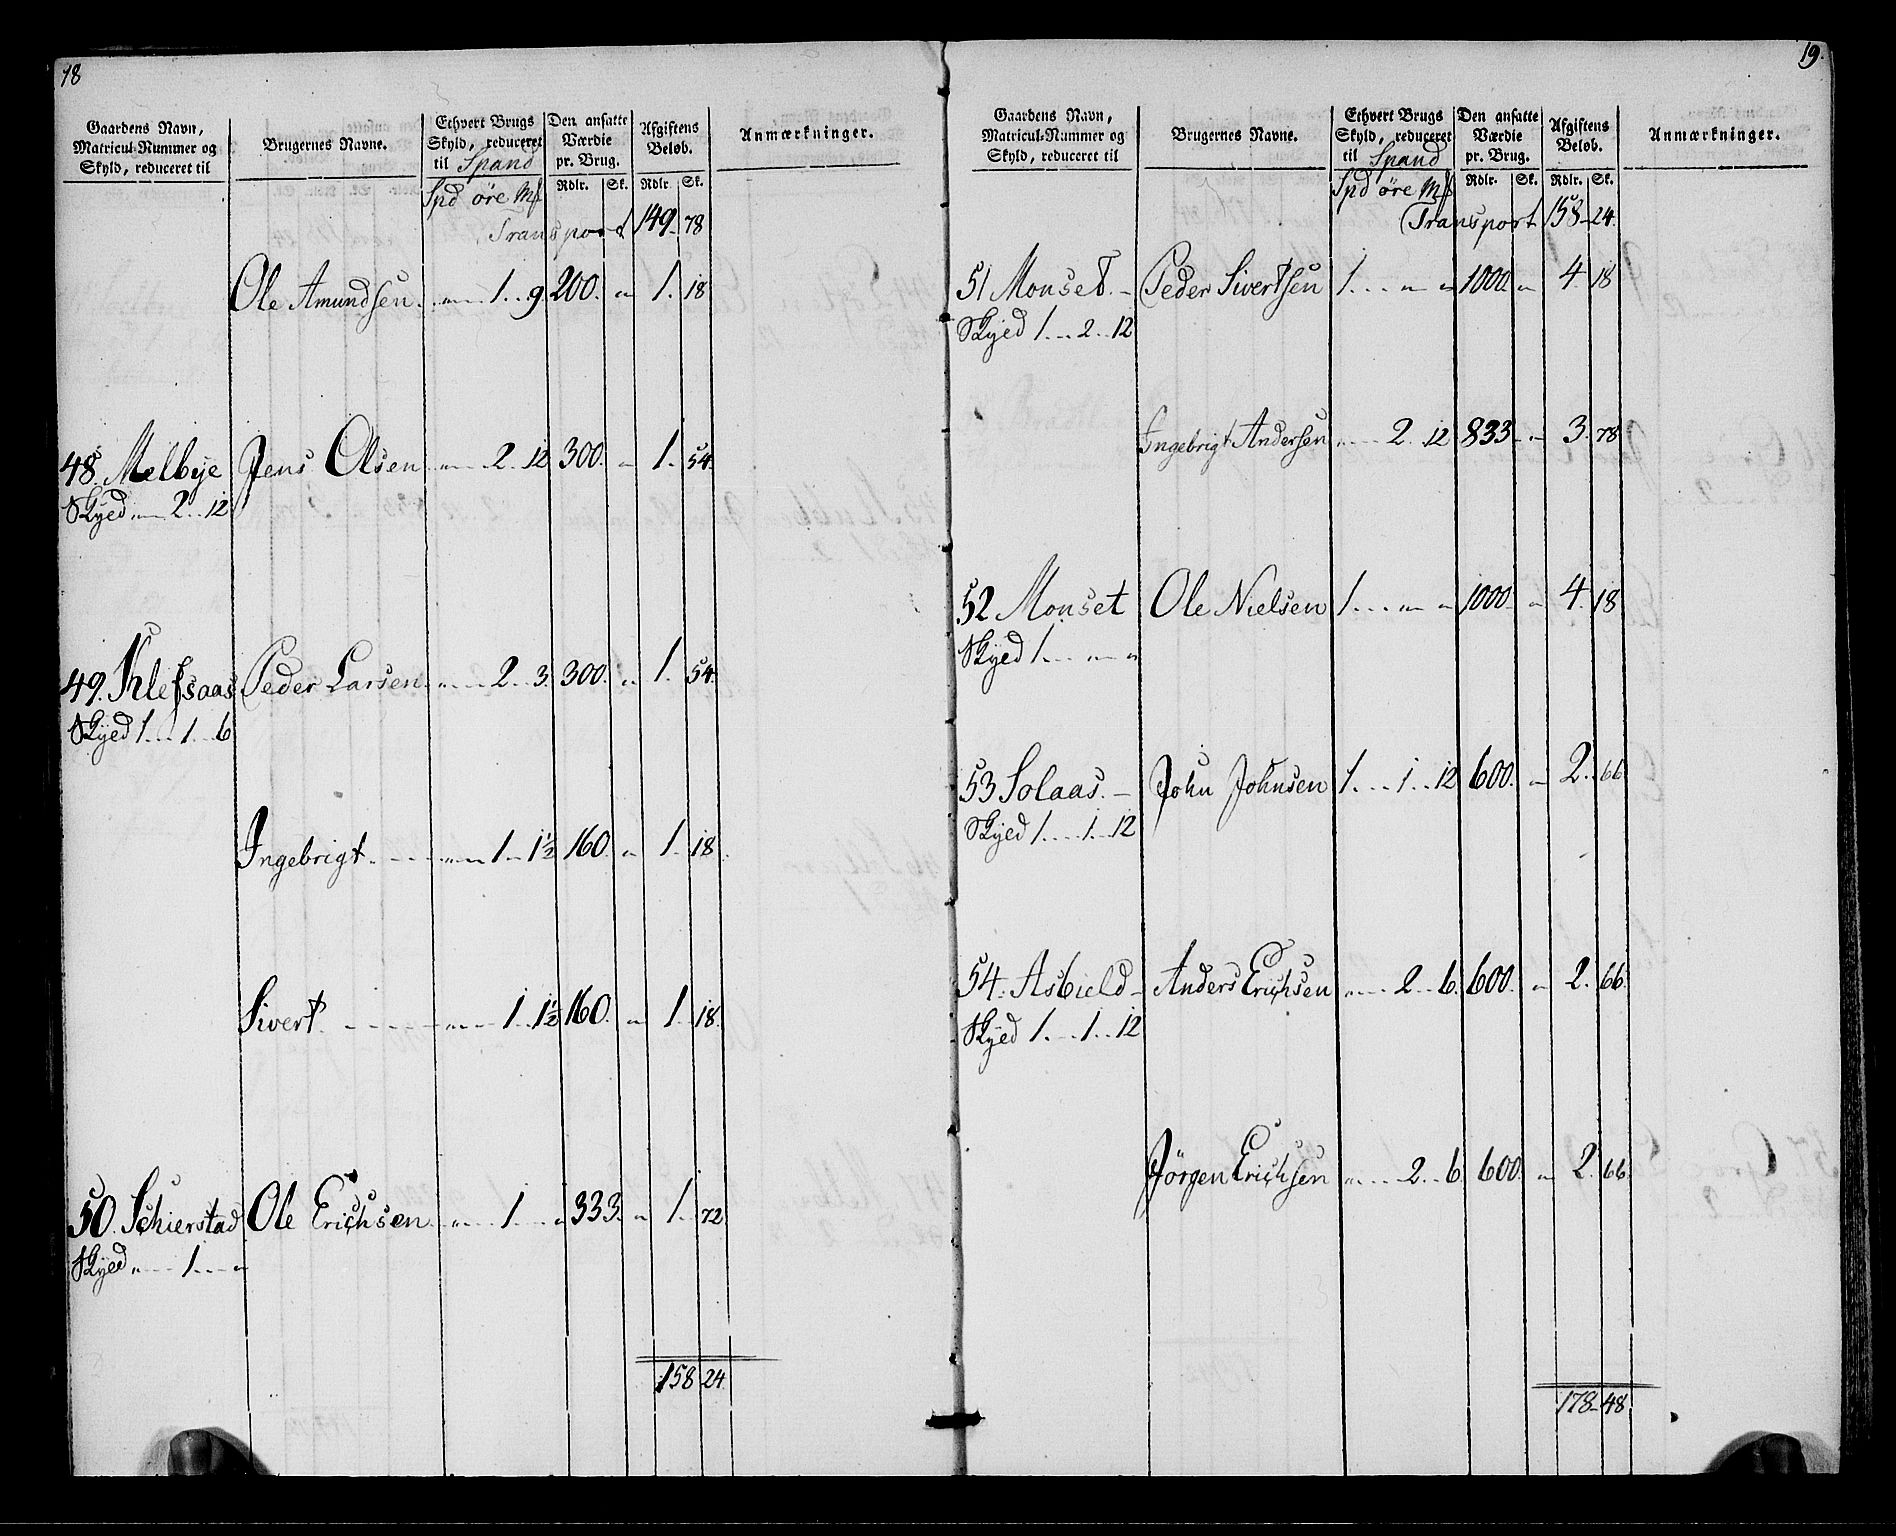 18
Gaardens Navn, Matricul-Nummer og Skyld, reduceret til
Brugernes Navne.
Ethvert Brugs Skyld, reduceret til Spand
Den ansatte Værdie pr. Brug.
Afgiftens Beløb.
Anmærkninger.
Spd öre Mk
Rdlr. Sk. Rdlr. Sk.
Transport 149 - 78
Ole Amundsen . . „ — 1 . . 9 200. „ 1. 18
48. Melbye Jens Olsen „ — 2 . 12 300. „ 1. 54
Skyed „ — 2 . . 12
49. Klefsaas Peder Larsen . „ — 2 . . 3. 300. „ 1. 54
Skyed 1 . . . 1 . . 6
Ingebrigt . . — „ — 1 — 1½ 160. „ 1. 18
Sivert . — „ — 1 . 1½ 160. „ 1. 18.
50. Schierstad Ole Erichsen . „ — 1 . . . „ 333. „ 1. 72
Skyed „ — 1 . . . „
158 24
19.
Gaardens Navn, Matricul-Nummer og Skyld, reduceret til
Brugernes Navne.
Ethvert Brugs Skyld, reduceret til Spand
Den ansatte Værdie pr. Brug.
Afgiftens Beløb.
Anmærkninger.
Spd öre Mk
Rdlr. Sk. Rdlr. Sk.
Transport 158 - 24.
51 Monset. — Peder Sivertsen 1 . . . „ „ 1000. „ 4. 18
Skyed 1 . . . 2 . . 12
Ingebrigt Andersen „ — 2 . 12 833 - „ 3. 78
52 Monset Ole Nielsen 1 . . . „ „ 1000. „ 4. 18
Skyed 1 . . . „ „
53 Solaas. — John Johnsen 1 . . . 1 . . 12 600. „ 2. 66
Skyed 1 . . . 1 . . 12
54. Asbield — Anders Erichsen „ — 2 . . 6. 600. „ 2. 66.
Skyed 1 . . . 1 . . 12
Jörgen Erichsen „ — 2 . . 6 600. „ 2. 66.
178 - 48